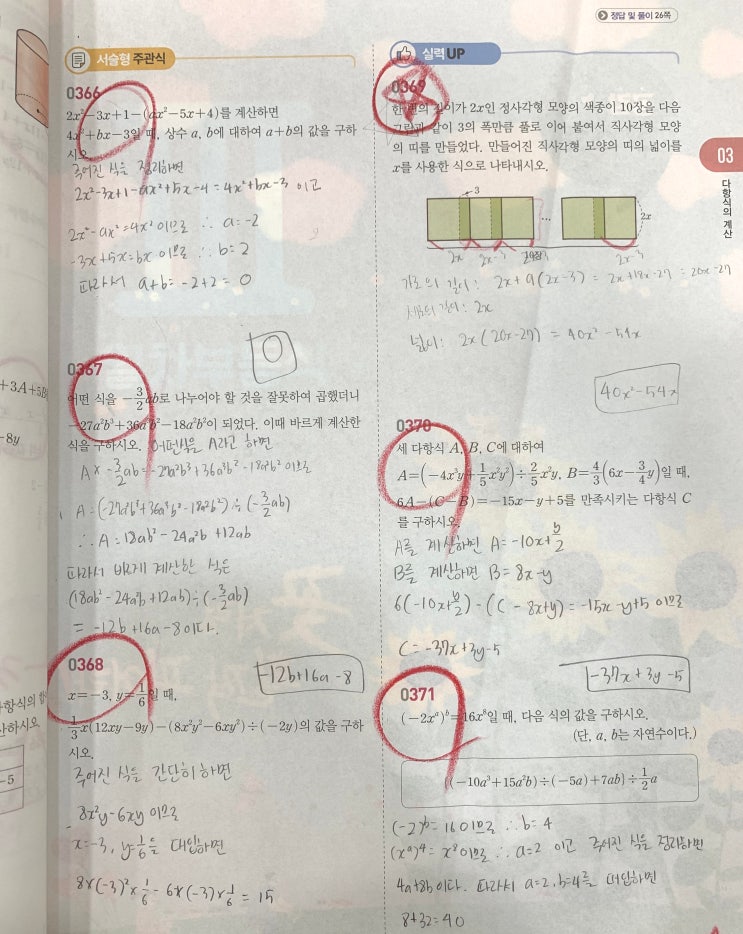 정답 및 풀이 26쪽
서술형 주관식
0366
2x²-3x+1-(ax²-5x+4)를 계산하면
4x²+bx-3일 때, 상수 a, b에 대하여 a+b의 값을 구하
시오.
주어진 식을 정리하면
2x²-3x+1-ax²+5x-4=4x²+bx-3 이고
2x²-ax²=4x² 이므로 ∴ a=-2
-3x+5x=bx 이므로 ∴ b=2
따라서 a+b=-2+2=0
0
0367
어떤 식을 -3/2ab로 나누어야 할 것을 잘못하여 곱했더니
-27a²b³+36a³b²-18a²b²이 되었다. 이때 바르게 계산한
식을 구하시오.
어떤식을 A라고 하면
A×-3/2ab=-27a²b³+36a³b²-18a²b² 이므로
A=(-27a²b³+36a³b²-18a²b²)÷(-3/2ab)
∴ A=18ab²-24a²b+12ab
따라서 바르게 계산한 식은
(18ab²-24a²b+12ab)÷(-3/2ab)
=-12b+16a-8이다.
-12b+16a-8
0368
x=-3, y=1/6일 때,
1/3x(12xy-9y)-(8x²y²-6xy²)÷(-2y)의 값을 구하
시오.
주어진 식을 간단히 하면
8x²y-6xy 이므로
x=-3, y=1/6을 대입하면
8×(-3)²×1/6-6×(-3)×1/6=15
실력 UP
0369
한 변의 길이가 2x인 정사각형 모양의 색종이 10장을 다음
그림과 같이 3의 폭만큼 풀로 이어 붙여서 직사각형 모양
의 띠를 만들었다. 만들어진 직사각형 모양의 띠의 넓이를
x를 사용한 식으로 나타내시오.
3
…
2x
2x 2x-3 2x-3
가로의 길이: 2x+9(2x-3)=2x+18x-27=20x-27
세로의 길이: 2x
넓이: 2x(20x-27)=40x²-54x
40x²-54x
0370
세 다항식 A, B, C에 대하여
A=(-4x³y+1/5x²y²)÷2/5x²y, B=4/3(6x-3/4y)일 때,
6A-(C-B)=-15x-y+5를 만족시키는 다항식 C
를 구하시오.
A를 계산하면 A=-10x+y/2
B를 계산하면 B=8x-y
6(-10x+y/2)-(C-8x+y)=-15x-y+5 이므로
C=-37x+3y-5
-37x+3y-5
0371
(-2xᵃ)ᵇ=16x⁸일 때, 다음 식의 값을 구하시오.
(단, a, b는 자연수이다.)
{(-10a³+15a²b)÷(-5a)+7ab}÷1/2a
(-2)ᵇ=16이므로 ∴ b=4
(xᵃ)⁴=x⁸이므로 ∴ a=2 이고 주어진 식을 정리하면
4a+8b이다. 따라서 a=2, b=4를 대입하면
8+32=40
03
다항식의 계산
+3A+5B
-8y
-5